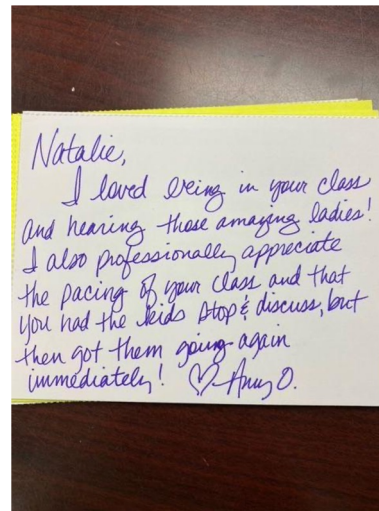 Natalie,
I loved being in your class
and hearing those amazing ladies!
I also professionally appreciate
the pacing of your class and that
you had the kids stop & discuss, but
then got them going again
immediately! ♡-Amy O.